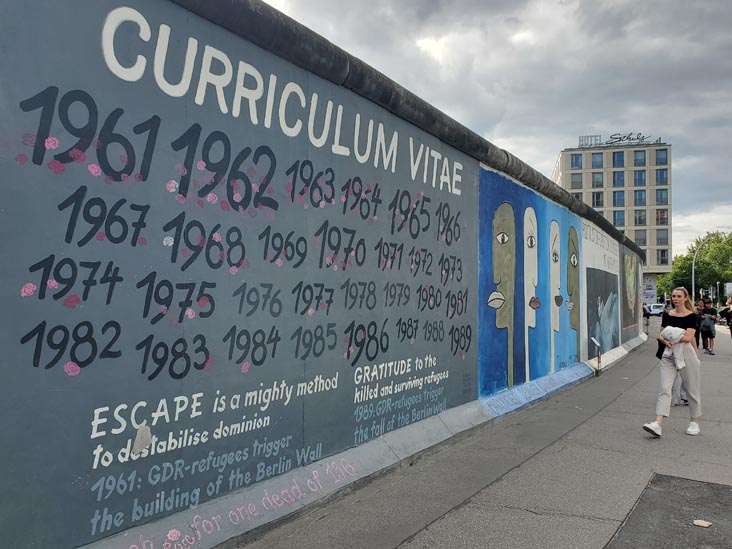 CURRICULUM VITAE
1961 1962 1963 1964 1965 1966
1967 1968 1969 1970 1971 1972 1973
1974 1975 1976 1977 1978 1979 1980 1981
1982 1983 1984 1985 1986 1987 1988 1989
ESCAPE is a mighty method
to destabilise dominion
1961: GDR-refugees trigger
the building of the Berlin Wall
GRATITUDE to the
killed and surviving refugees
1989: GDR-refugees trigger
the fall of the Berlin Wall
for one dead of
HOTEL Schulz